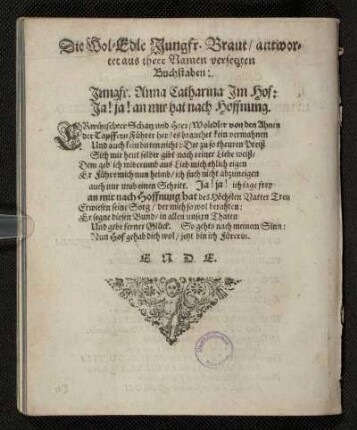 Die Wol-Edle Jungfr. Braut / antwor-
tet aus ihrer Namen versetzten
Buchstaben:
Jungfr. Anna Catharina Im Hof:
Ja! ja! an mir hat nach Hoffnung.
ERwünschter Schatz und Herr / Woledler von den Ahnen
der Tapffern Führer her / es brauchet kein vermahnen
Und auch kein bitten nicht: Der zu so theuren Preiß
Sich mir heut selbst gibt nach reiner Liebe weiß /
Dem geb ich widerumb aus Lieb mich ehlich eigen
Er Führe mich nun heimb / ich such nicht abzuneigen
auch nur umb einen Schritt. Ja! ja! ich sage frey
an mir nach Hoffnung hat des Höchsten Vatter Treu
Erwiesen seine Sorg / der mich so wol berahten:
Er segne diesen Bund / in allen unsern Thaten
Und gebe ferner Glück. So gehts nach meinem Sinn:
Nun Hof gehab dich wol / jetzt bin ich Fürerin.
E N D E.